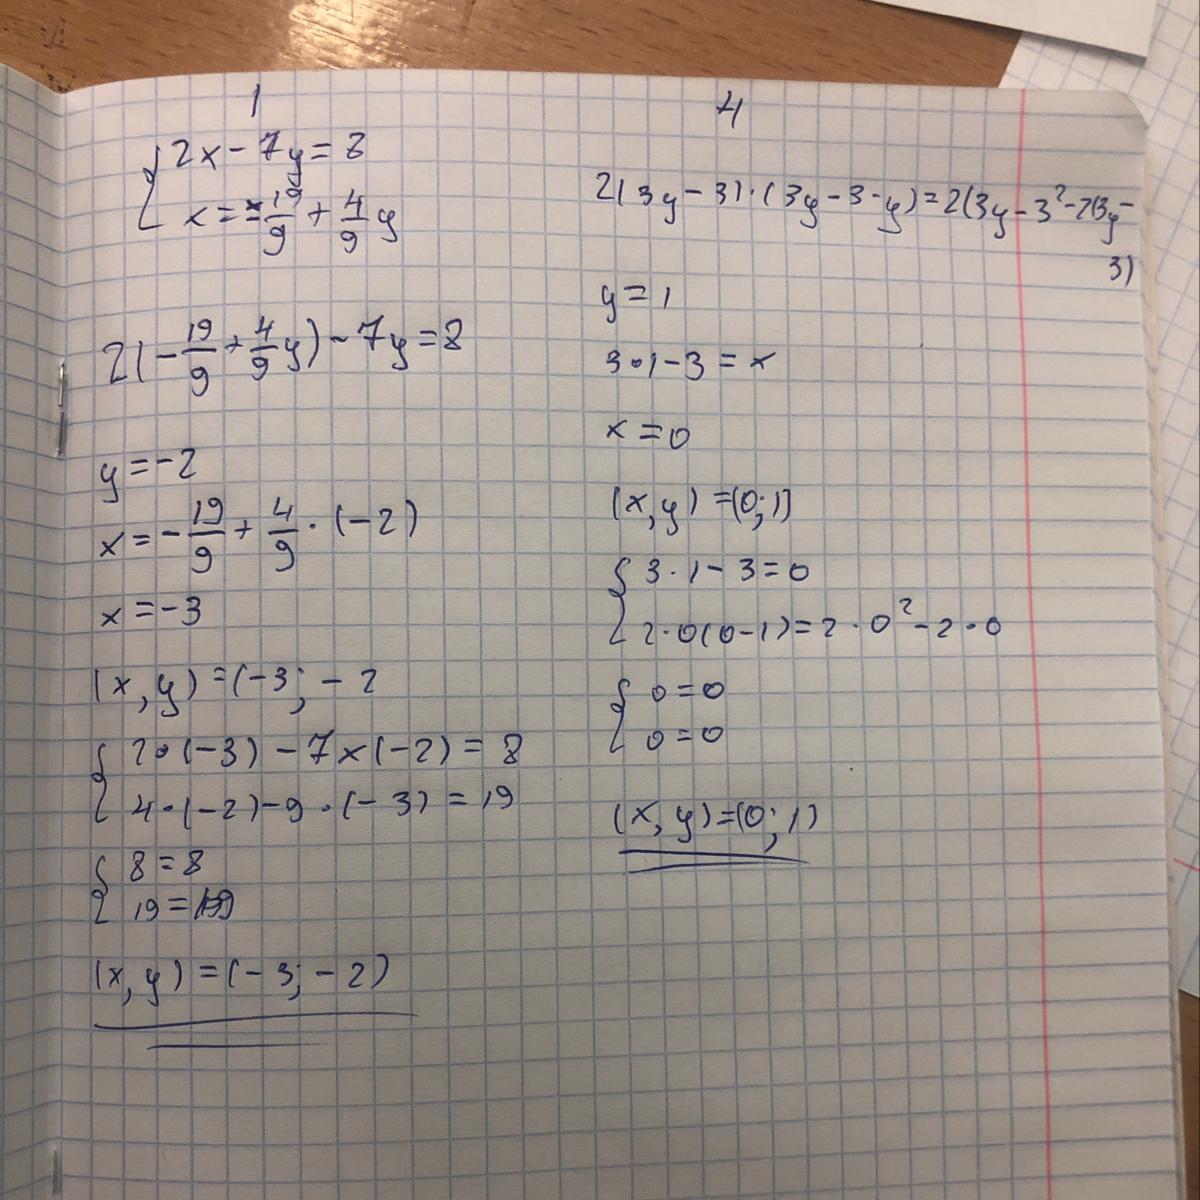 1
2x - 7y = 8
x = -19/9 + 4/9 y
2(-19/9 + 4/9 y) - 7y = 8
y = -2
x = -19/9 + 4/9 · (-2)
x = -3
(x, y) = (-3; -2
2·(-3) - 7×(-2) = 8
4·(-2) - 9·(-3) = 19
8 = 8
19 = 19
(x, y) = (-3; -2)
4
2(3y - 3)·(3y - 3 - y) = 2(3y - 3² - 2(3y -
3)
y = 1
3·1 - 3 = x
x = 0
(x, y) = (0; 1)
3·1 - 3 = 0
2·0(0 - 1) = 2·0² - 2·0
0 = 0
0 = 0
(x, y) = (0; 1)